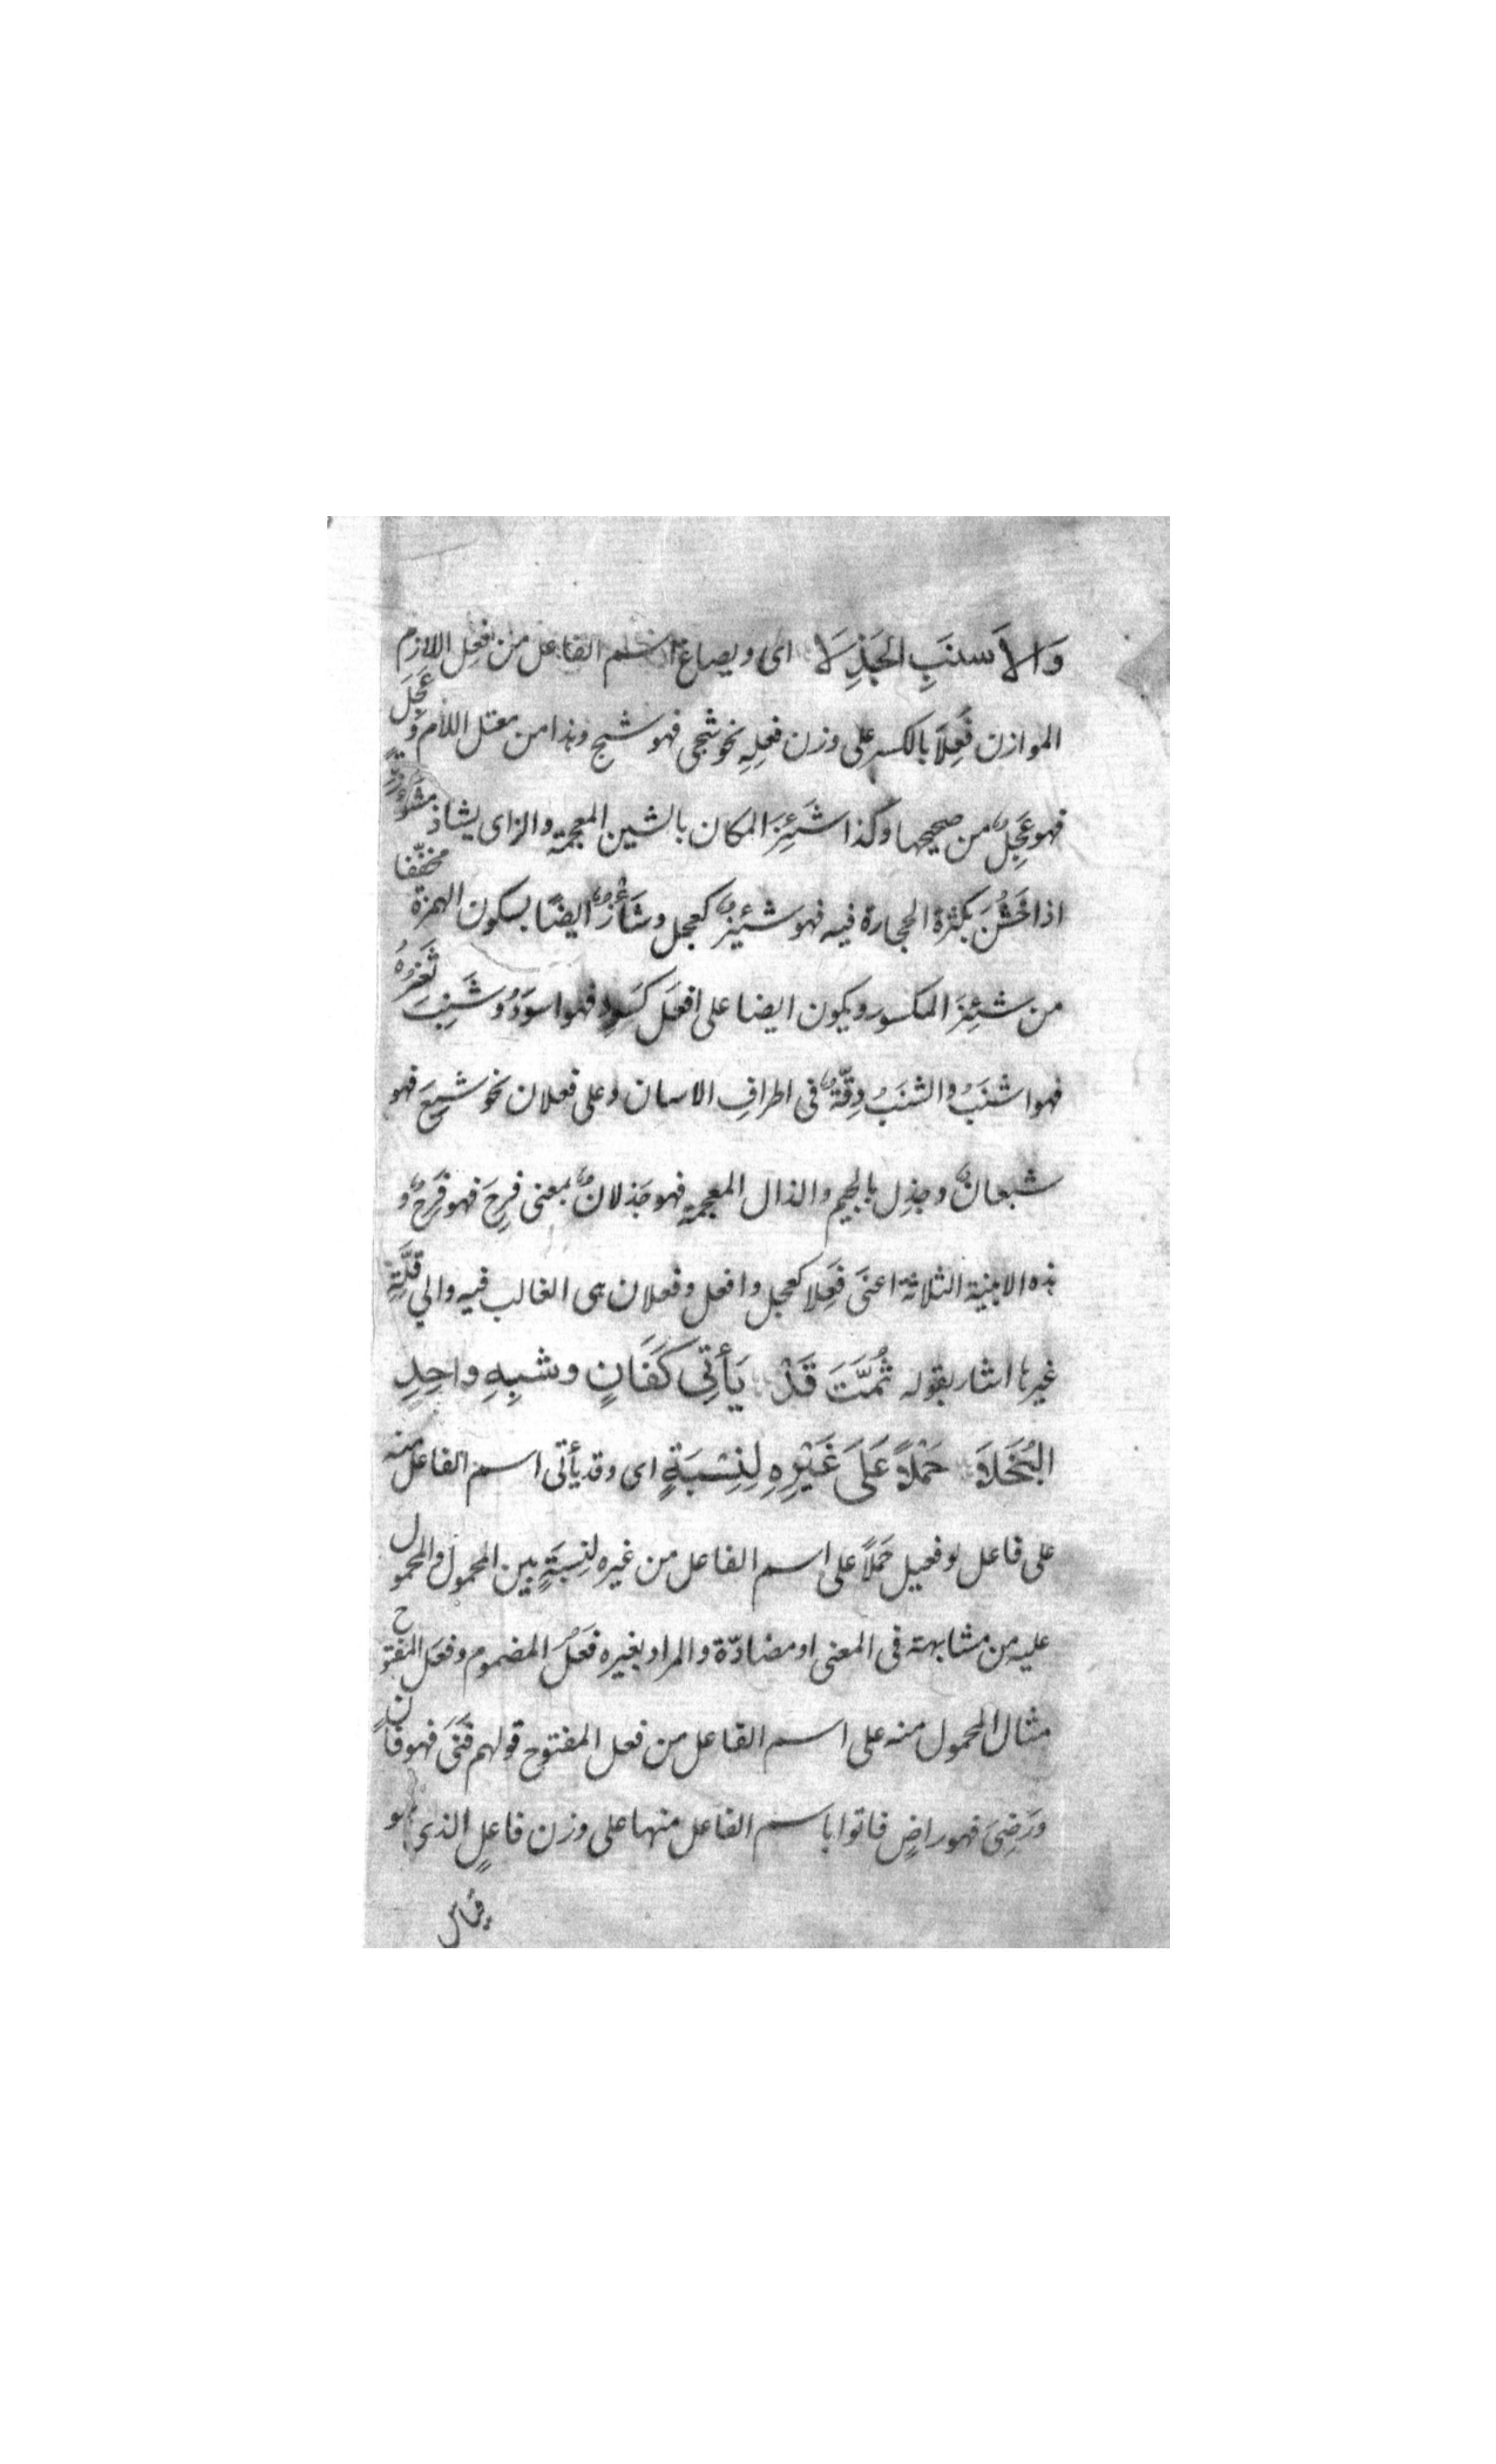 وَالاَسنَبِ الجَذِلاَ اى ويصاغ اسم الفاعل من فعِل اللازم
الموازن فَعِلاً بالكسر على وزن فعِلِهِ نحو شجى فهو شج وهذا من معتل اللام وَعَجِلَ
فهو عَجِلٌ من صحيحها وكذا شَئِزَ المكان بالشين المعجمة والزاى يشاذ
اذا خَشُنَ بكثرة الحجارة فيه فهو شئِيزٌ كعجل وشَأْزٌ ايضًا بسكون الهمزة مخفّفا
من شئِزَ المكسور ويكون ايضا على افعَل كَسَوِد فهو اسوَدُ وشَنِبَ ثَغرُهُ
فهو اشنَبُ والشنَبُ دِقّةٌ فى اطرافِ الاسنان وعلى فعلان نحو شبِعَ فهو
شبعانٌ وجذِل بالجيم والذال المعجمة فهو جَذلانٌ بمعنى فرِحَ فهو فَرِحٌ و
هذه الابنية الثلاثة اعنى فَعِلا كعجل وافعل وفعلان هى الغالب فيه والي قلَّةِ
غيرها اشار بقوله ثُمَّتَ قَدْ يَأتِى كَفَانٍ وشبِهِ واحِدِ
البُخَلاَ حَمْلاً عَلَى غَيْرِهِ لِنِسْبَةٍ اى وقد يأتى اسم الفاعل منه
على فاعل او فعيل حَملاً على اسم الفاعل من غيره لنِسبَةٍ بين المحمول والمحمول
عليه من مشابهة فى المعنى او مضادّة والمراد بغيره فعَُل المضموم وفعَل المفتوح
مثال المحمول منه على اسم الفاعل من فعل المفتوح قولهم فَنَى فهو فانٍ
ورَضِىَ فهو راضٍ فاتوا باسم الفاعل منها على وزن فاعلٍ الذى هو